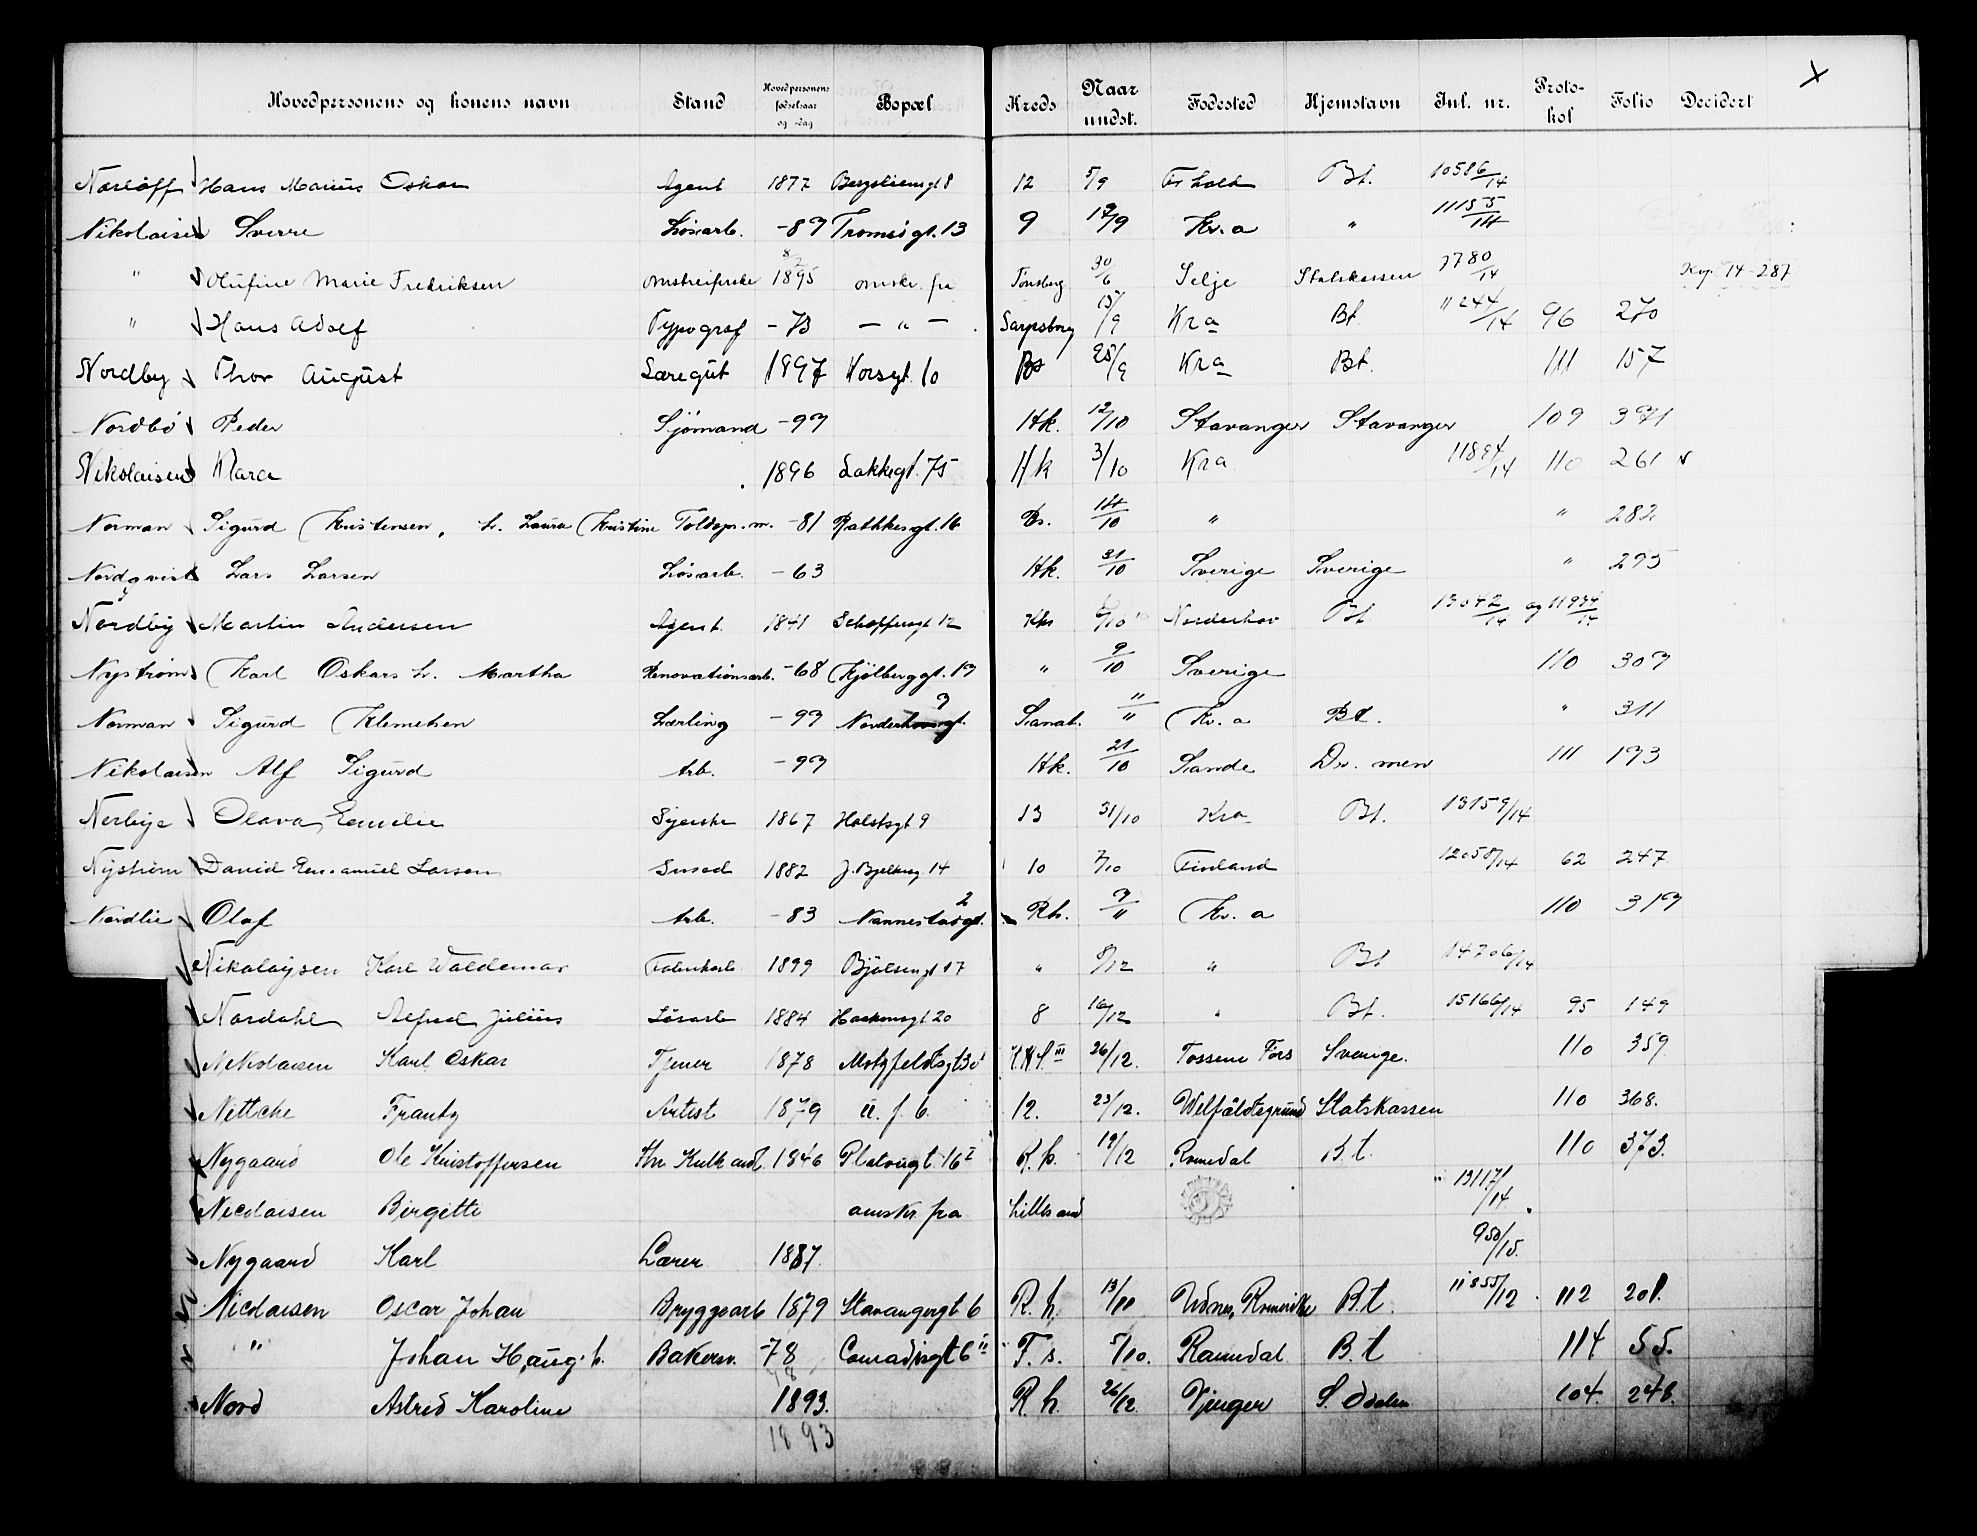 Hovedpersonens og konens navn Stand Hovedpersonens fødselsaar og -dag Bopæl Kreds Naar undst. Fødested Hjemstavn Inl. nr. Protokol Folio Decidert
Hans Marius Oskar Agent 1877 8 12 5/9 Fr.hald Bt. 10586/14
Nikolaisen Sverre Løsarb. -89 Tromsøgt. 13 9 Kr.a " 11155/14
" Olufine Marie Fredriksen omstreiferske 8/2 1895 omskr. fra Tønsberg 30/6 Selje Statskassen 7780/14 Kop. 14-287
" Hans Adolf Typograf -73 — " — Sarpsborg 15/9 Kra Bt. 11244/14 96 270
Nordby Thor August Læregut 1897 Korsgt. 10 Bs 25/9 Kra Bt. 111 157
Nordbø Peder Sjömand -99 Hk. 12/10 Stavanger Stavanger 109 391
Nikolaisen Klara 1896 Lakkegt. 75 Hk 3/10 Kra 11894/14 110 261
Norman Sigurd Kristensen, h. Laura Kristine Toldop.m. -81 Rathkesgt. 16 Bs. 14/10 " " 282
Nordqvist Lars Larsen Løsarb. -63 Hk. 31/10 Sverige Sverige " 295
Nordby Martin Andersen Agent. 1841 Schøffersgt 12 Khs /10 Norderhov Bt. 13042/14 og 11934/14
Nyström Karl Oskar h. Martha Renovationsarb. -68 Kjölberggt. 19 " 9/10 Sverige 110 309
Norman Sigurd Klemetsen Lærling -99 Norderhovsgt. 9 Sanat. "/" Kr.a Bt. " 311
Nikolaisen Alf Sigurd Arb. -99 Hk. 21/10 Sande Dr.men 111 193
Nerbye Olava Emelie Syerske 1867 Holstsgt 9 13 31/10 Kra Bt. 13159/14
Nyström David Emanuel Larsen Smed 1882 J. Bjelkesg 14 10 7/10 Finland 12058/14 62 247
Nordlie Olaf Arb. -83 Nannestadgt. 2 Rh. 9/11 Kr.a 110 319
Nikolaysen Karl Waldemar Fabrikarb. 1899 Bjølsengt 17 " 8/12 " Bt 14706/14
Nordahl Alfred Julius Løsarb 1884 Haakonsgt 20 8 16/12 " Bt. 15166/14 95 149
Nikolaisen Karl Oskar Tjener 1878 Motzfeldtsgt 30 III 26/12. Tossene Fors Sverige. 110 359
Nittche Frantz Artist 1879 u. f. b. 12. 23/12. Welfåldtsgrund Statskassen 110 368.
Nygaard Ole Kristoffersen 1846 Platougt. 16 I R.h. 19/12 Romedal B.t. 110 373.
Nicolaisen Birgitte omskr. fra Lillesand 13117/14.
Nygaard Karl Lærer 1887. 950/15.
Nicolaisen Oscar Johan Bryggearb 1879 Stavangergt 6 R.h. Udnes, Romerike B.t. 11855/12 112 201.
" Johan H. aug. h. Bakersv. -78 Conradisgt 6 II F.s. 5/10. Ramdal B.t 114 55.
Nord Astrid Karoline 1893. R.h. 26/12 Vinger S. Odalen 104. 248.
1893